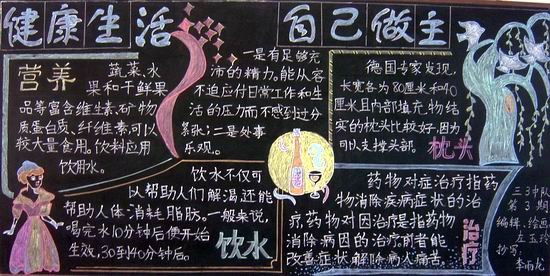 健康生活
自己做主
营养
蔬菜、水
果和干鲜果
品等富含维生素、矿物
质、蛋白质、纤维素,可以
较大量食用。饮料应用
饮用水。
一是有足够充
沛的精力,能从容
不迫应付日常工作和生
活的压力而不感到过分
紧张;二是处事
乐观。
德国专家发现,
长宽各为80厘米和40
厘米且内部填充物结
实的枕头比较好,因为
可以支撑头部。
枕头
饮水不仅可
以帮助人们解渴还能
帮助人体消耗脂肪。一般来说,
喝完水10分钟后便开始
生效,30到40分钟后。
饮水
药物对症治疗指药
物消除疾病症状的治
疗,药物对因治疗是指药物
消除病因的治疗,前者能
改善症状解除病人痛苦。
治疗
三3中队
第3期
编辑、绘画
抄写:
李雨龙